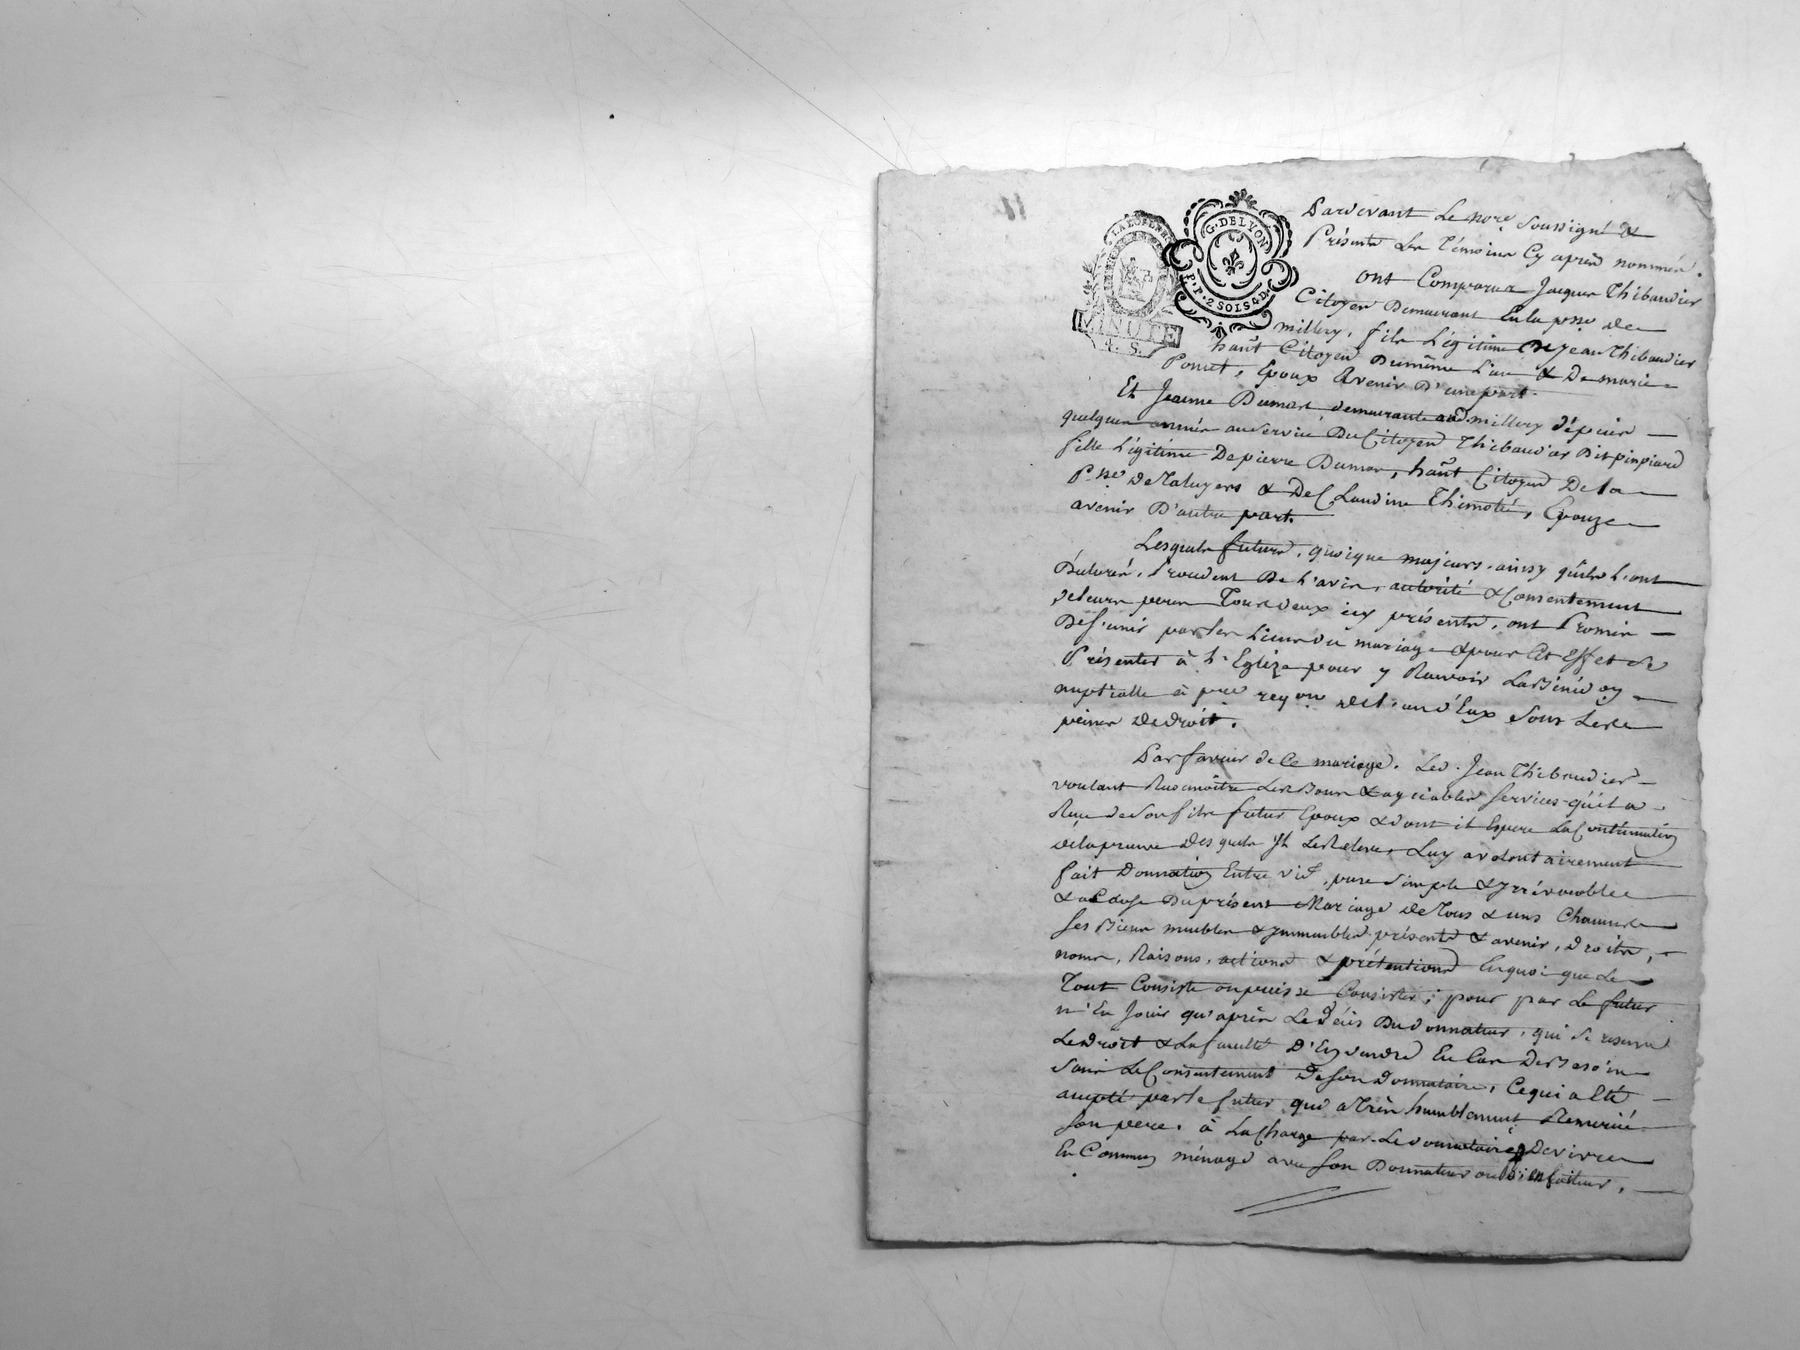 LA LOI LE ROI
MINUTE
4. S.
G. DE LYON
P. P. 2 SOLS 4 D.
Pardevant Le nore. Soussigné &
Présents Les Témoins Cy après nommés.
ont Comparus Jacques Thibaudier
Citoyen Demeurant En la psse de
millery, fils Légitime De Jean Thibaudier
hant Citoyen Du même Lieu & De marie
Ponset, Epoux Avenir D'une part.
Et Jeanne Dumas, demeurante aud. millery dépuis
quelques années au Service Du Citoyen Thibaudier Dit pinpiard
fille Légitime De pierre Dumas, hant Citoyen De la
Psse de Taluyers & De Claudine Thimoté, Epouze
avenir D'autre part.
Lesquels futurs, quoique majeurs, ainsy qu'ils L'ont
Déclaré, Procédent De L'avis, autorité & Consentement
de leurs peres Tous deux icy présents, ont Promis
De s'unir par les Liens du mariage & pour Cet Effet se
Présenter à L'Eglize pour y Recevoir La Bénédon
nuptialle à pre. reqon. de l'un d'Eux Sous Les
peines de droit.
Par faveur de Ce mariage. Led. Jean Thibaudier
voulant Reconnoître Les Bons & agréables Services qu'il a
Reçu de Son fils futur Epoux & dont il Espere La Continuation
dela preuve Des quels Il Le Releve, Luy a volontairement
fait Donnation Entre vifs, pure Simple & Irrévocable
& a Cause Du présent Mariage de Tous & uns Chacuns
Ses Biens meubles & Immeubles présents & avenir, droits,
noms, Raisons, actions & prétentions En quoi que Le
Tout Consiste ou puisse Consister ; pour par Le futur
n'En Jouir qu'après Le Déçès Du donnateur, qui Se réserve
Le droit & La faculté D'En vendre En Cas De Besoin
Sans Le Consentement De Son Donnataire, Ce qui a Eté
accepté par le futur qui a Très humblement Remercié
Son pere. à La Charge par Le donnataire De vivre
En Commun ménage avec Son Donnateur ou bienfaiteur,